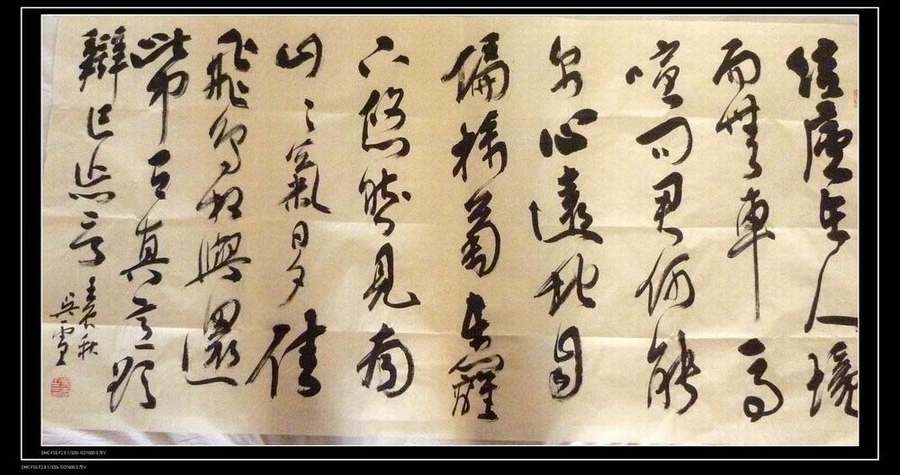 結廬在人境
而無車馬
喧問君何能
尔心遠地自
偏採菊東籬
下悠然見南
山〻氣日夕佳
飛鳥相與還
此中有真意欲
辯已忘言
秋